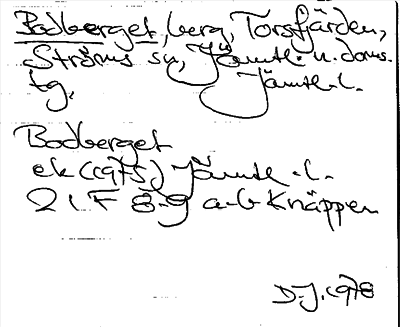 Bodberget, berg, Torsfjärden,
Ströms sn, Jämtl. n. doms.
tg, Jämtl. l.
Bodberget
ek (1975) Jämtl. l.
21 F 8-9 a-b Knäppen
D.J. 1978